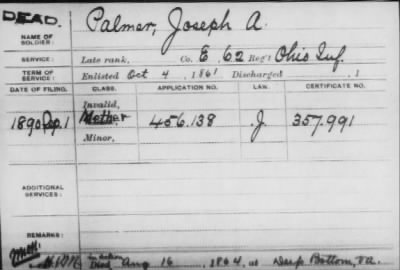 DEAD.
NAME OF SOLDIER: Palmer, Joseph A.
SERVICE: Late rank, Co. E, 62 Reg't Ohio Inf.
TERM OF SERVICE: Enlisted Oct 4, 1861 Discharged , 1
DATE OF FILING. CLASS. APPLICATION NO. LAW. CERTIFICATE NO.
Invalid,
1890 Sep. 1 Mother 456.138 J. 357.991
Minor,
ADDITIONAL SERVICES:
REMARKS:
in action
Died Aug 16, 1864, at Deep Bottom, Va.